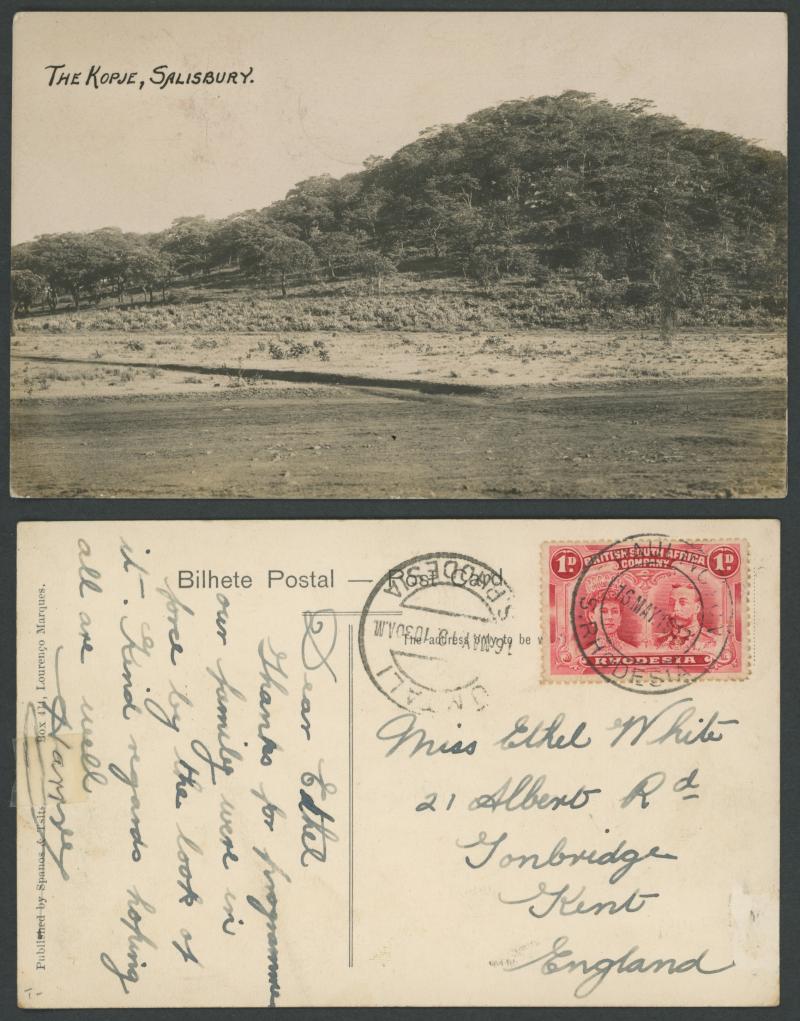 THE KOPJE, SALISBURY.
Bilhete Postal — Post Card
The address only to be w
1D BRITISH SOUTH AFRICA COMPANY 1D
RHODESIA
S. RHODESIA
16 MAY
10 30 A.M.
UMTALI
S. RHODESIA
Dear Ethel
Thanks for programme
our family were in
force by the look of
it-. Kind regards hoping
all are well
Harry
Miss Ethel White
21 Albert Rd
Tonbridge
Kent
England
Published by Spanos & Tsitsias, Box 434, Lourenço Marques.